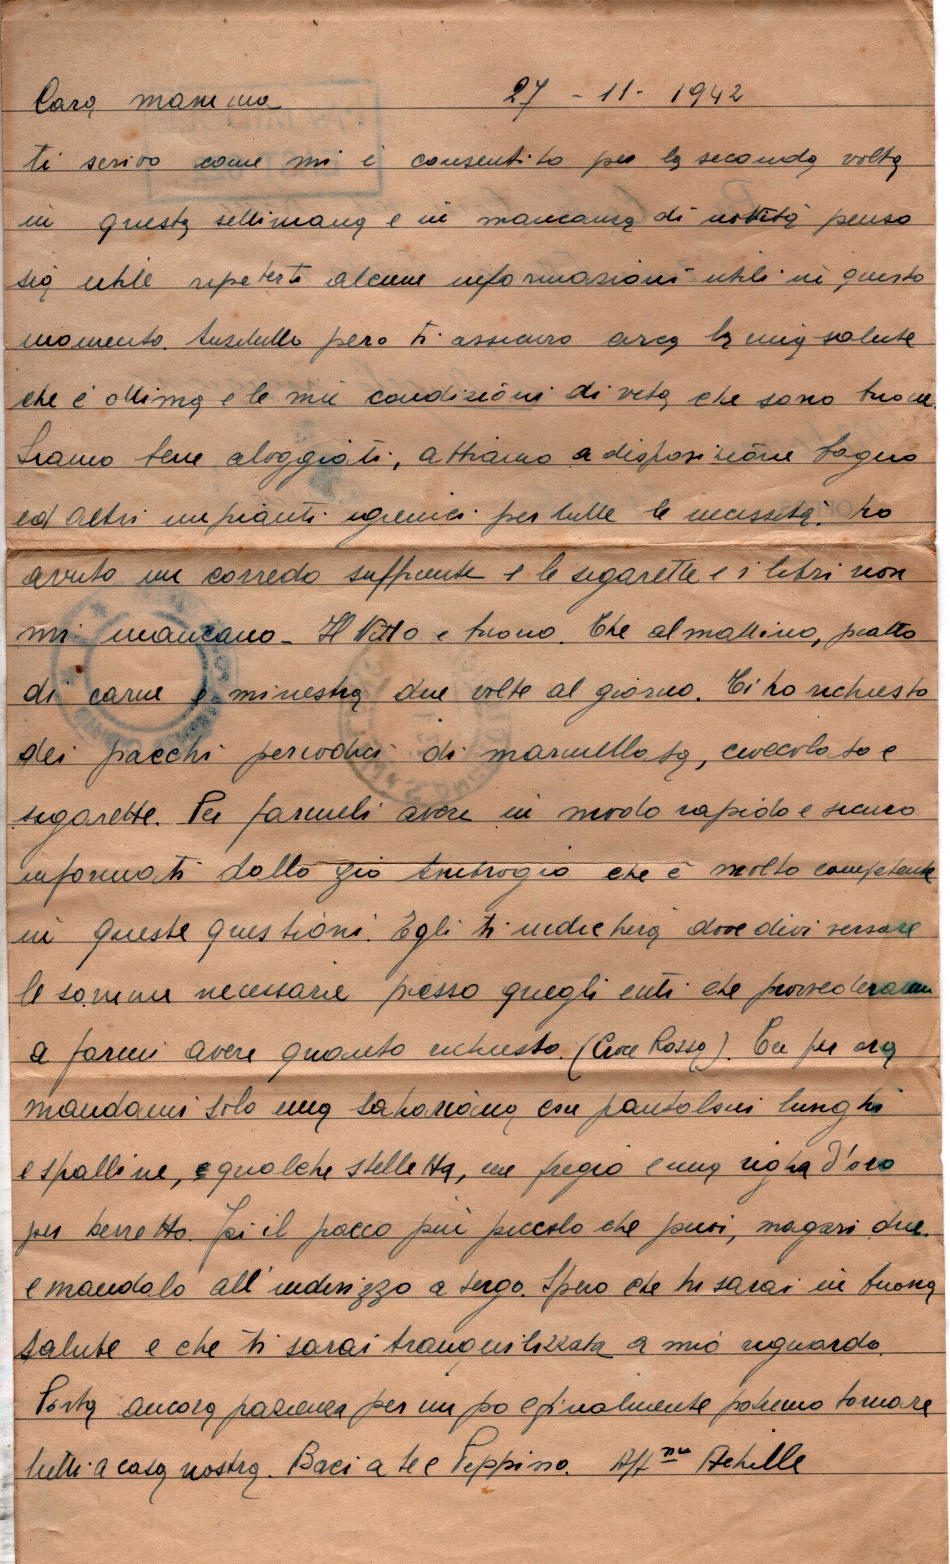 Cara mamma 27 - 11 - 1942
ti scrivo come mi è consentito per la seconda volta
in questa settimana e in mancanza di novità penso
sia utile ripeterti alcune informazioni utili in questo
momento. Anzitutto però ti assicuro circa la mia salute
che è ottima e le mie condizioni di vita che sono buone.
Siamo bene aloggiati, abbiamo a disposizione bagno
ed altri impianti igienici per tutte le necessità. ho
avuto un corredo sufficiente e le sigarette e i libri non
mi mancano - Il Vitto è buono. The al mattino, piatto
di carne e minestra due volte al giorno. Ti ho richiesto
dei pacchi periodici di marmellata, cioccolato e
sigarette. Per farmeli avere in modo rapido e sicuro
informati dallo zio Ambrogio che è molto competente
in queste questioni. Egli ti indicherà dove divi versare
le somme necessarie presso quegli enti che provvederanno
a farmi avere quanto richiesto. (Croce Rossa). Tu per ora
mandami solo una sahariana con pantaloni lunghi
e spalline, e qualche stelletta, un fregio e una righa d'oro
per berretto. Fai il pacco più piccolo che puoi, magari due.
e mandalo all'indirizzo a tergo. Spero che tu sarai in buona
salute e che ti sarai tranquilizzata a mio riguardo.
Porta ancora pazienza per un po e finalmente potremo tornare
tutti a casa nostra. Baci a te e Peppino. Aff.mo Achille